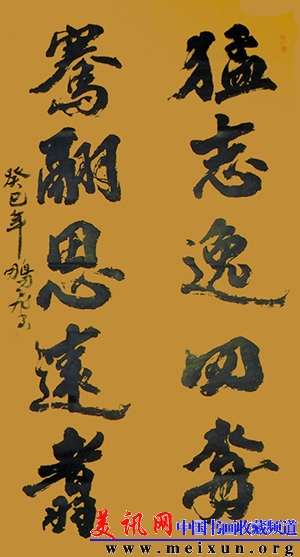 猛志逸四海
騫翮思遠翥
癸巳年
美讯网 中国书画收藏频道
www.meixun.org